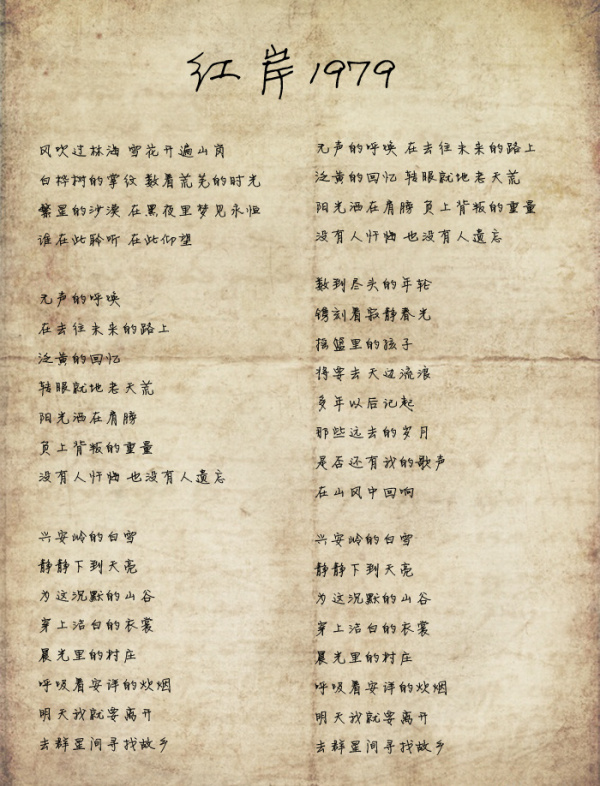 红岸1979
风吹过林海 雪花开遍山岗
白桦树的掌纹 数着荒芜的时光
繁星的沙漠 在黑夜里梦见永恒
谁在此聆听 在此仰望
无声的呼唤
在去往未来的路上
泛黄的回忆
转眼就地老天荒
阳光洒在肩膀
负上背叛的重量
没有人忏悔 也没有人遗忘
兴安岭的白雪
静静下到天亮
为这沉默的山谷
穿上洁白的衣裳
晨光里的村庄
呼吸着安详的炊烟
明天我就要离开
去群星间寻找故乡
无声的呼唤 在去往未来的路上
泛黄的回忆 转眼就地老天荒
阳光洒在肩膀 负上背叛的重量
没有人忏悔 也没有人遗忘
数到尽头的年轮
镌刻着寂静春光
摇篮里的孩子
将要去天边流浪
多年以后记起
那些远去的岁月
是否还有我的歌声
在山风中回响
兴安岭的白雪
静静下到天亮
为这沉默的山谷
穿上洁白的衣裳
晨光里的村庄
呼吸着安详的炊烟
明天我就要离开
去群星间寻找故乡